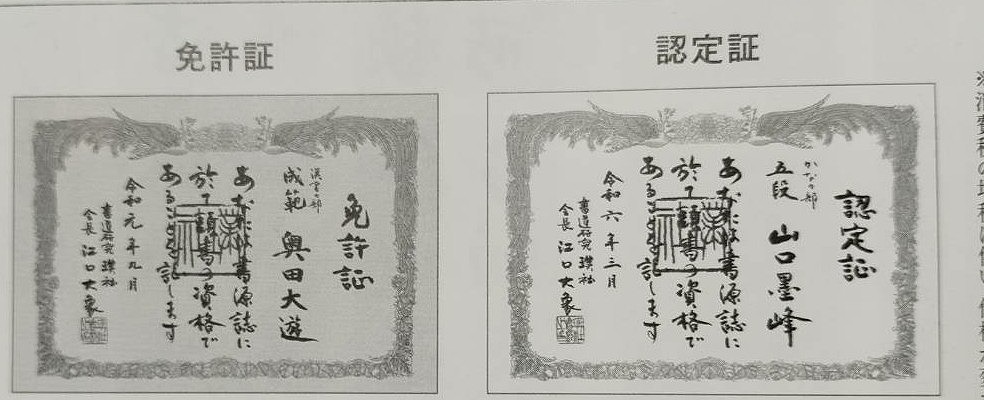 免許証
免許証
漢字の部
成範 奥田大遊
あなたは書源誌に
於て頭書の資格で
あることを認します
令和元年九月
書道研究璞社
会長 江口大象
認定証
認定証
かなの部
五段 山口墨峰
あなたは書源誌に
於て頭書の資格で
あることを記します
令和六年三月
書道研究璞社
会長 江口大象